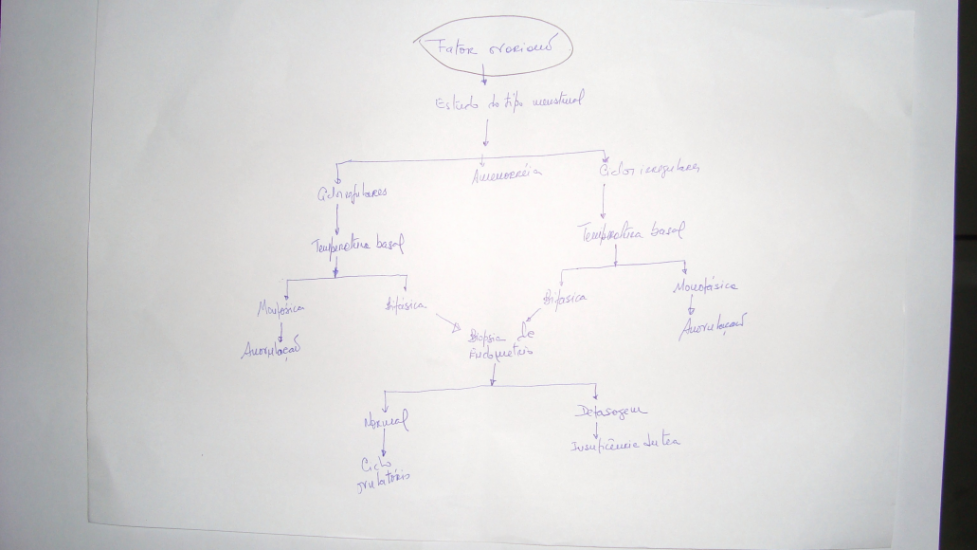 Fator ovariano
Estudo do tipo menstrual
Ciclos regulares
Amenorréia
Ciclos irregulares
Temperatura basal
Temperatura basal
Monofásica
Bifásica
Bifásica
Monofásica
Anovulação
Anovulação
Biópsia de
Endométrio
Normal
Defasagem
Ciclo
ovulatório
Insuficiência lútea